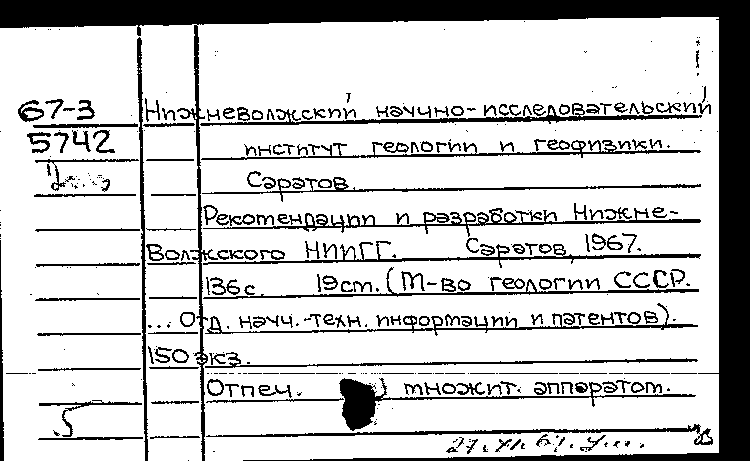 67-3 Нижневолжский научно-исследовательский
5742 институт геологии и геофизики.
Саратов.
Рекомендации и разработки Нижне-
Волжского НИИГГ. Саратов, 1967.
136с. 19cm. (М-во геологии СССР.
... Отд. науч.-техн. информации и патентов).
150 экз.
Отпеч. множит. аппаратом.
5